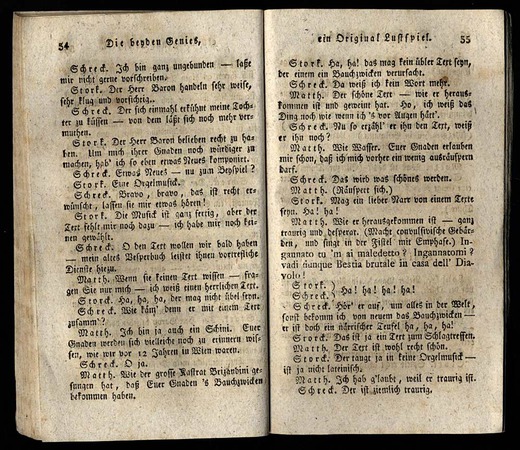 54 Die beyden Genies,
Schreck. Ich bin ganz ungebunden — laße
mir nicht gerne vorschreiben.
Stork. Der Herr Baron handeln sehr weise,
sehr klug und vorsichtig..
Schreck. Der sich einmahl erkühnt meine Toch-
ter zu küssen — von dem läßt sich noch mehr ver-
muthen.
Stork. Der Herr Baron belieben recht zu ha-
ben. Um mich ihrer Gnaden noch würdiger zu
machen, hab' ich so eben etwas Neues komponiret.
Schreck. Etwas Neues — nu zum Beyspiel?
Stork. Eine Orgelmusick.
Schreck. Bravo, bravo, das ist recht er-
wünscht, lassen sie mir etwas hören!
Stork. Die Musick ist ganz fertig, aber der
Text fehlt mir noch dazu — ich habe mir noch kei-
nen gewählt.
Schreck. O den Text wollen wir bald haben
— mein altes Vesperbuch leistet ihnen vortrefliche
Dienste hiezu.
Matth. Wenn sie keinen Text wissen — fra-
gen Sie nur mich — ich weiß einen herrlichen Text.
Stork. Ha, ha, ha, der mag nicht übel seyn.
Schreck. Wie käm' denn er mit einem Text
zusamm'?
Matth. Ich bin ja auch ein Schini. Euer
Gnaden werden sich vielleicht noch zu erinnern wis-
sen, wie wir vor 12 Jahren in Wien waren.
Schreck. O ja.
Matth. Wie der grosse Kastrat Brizändini ge-
sungen hat, daß Euer Gnaden 's Bauchzwicken
bekommen haben.
ein Original Lustspiel. 55
Stork. Ha, ha! das mag kein übler Text seyn,
der einem ein Bauchzwicken verursacht.
Schreck. Da weiß ich kein Wort mehr.
Matth. Der schöne Text — wie er heraus-
kommen ist und geweint hat. Ho, ich weiß das
Ding noch wie wenn ich's vor Augen hätt'.
Schreck. Nu so erzähl' er ihn den Text, weiß
er ihn noch?
Matth. Wie Wasser. Euer Gnaden erlauben
mir schon, daß ich mich vorher ein wenig ausräuspern
darf.
Schreck. Das wird was schönes werden.
Matth. (Räuspert sich.)
Stork. Mag ein lieber Narr von einem Texte
seyn. Ha! ha!
Matth. Wie er herausgekommen ist — ganz
traurig und desperat. (Macht convulsivische Gebär-
den, und singt in der Fistel mit Emphase.) In-
gannato tu 'm ai maledetto? Ingannatomi?
vadi dunque Bestia brutale in casa dell' Dia-
volo!
Stork. )
Schreck.) Ha! ha! ha! ha!
Schreck. Hör' er auf, um alles in der Welt,
sonst bekomm ich von neuem das Bauchzwicken —
er ist doch ein närischer Teufel ha, ha, ha!
Stork. Das ist ja ein Text zum Schlagtreffen.
Matth. Der Text ist wohl recht schön.
Stork. Der tauge ja in keine Orgelmusick —
ist ja nicht lateinisch.
Matth. Ich hab g'laubt, weil er traurig ist.
Schreck. Der ist ziemlich traurig.